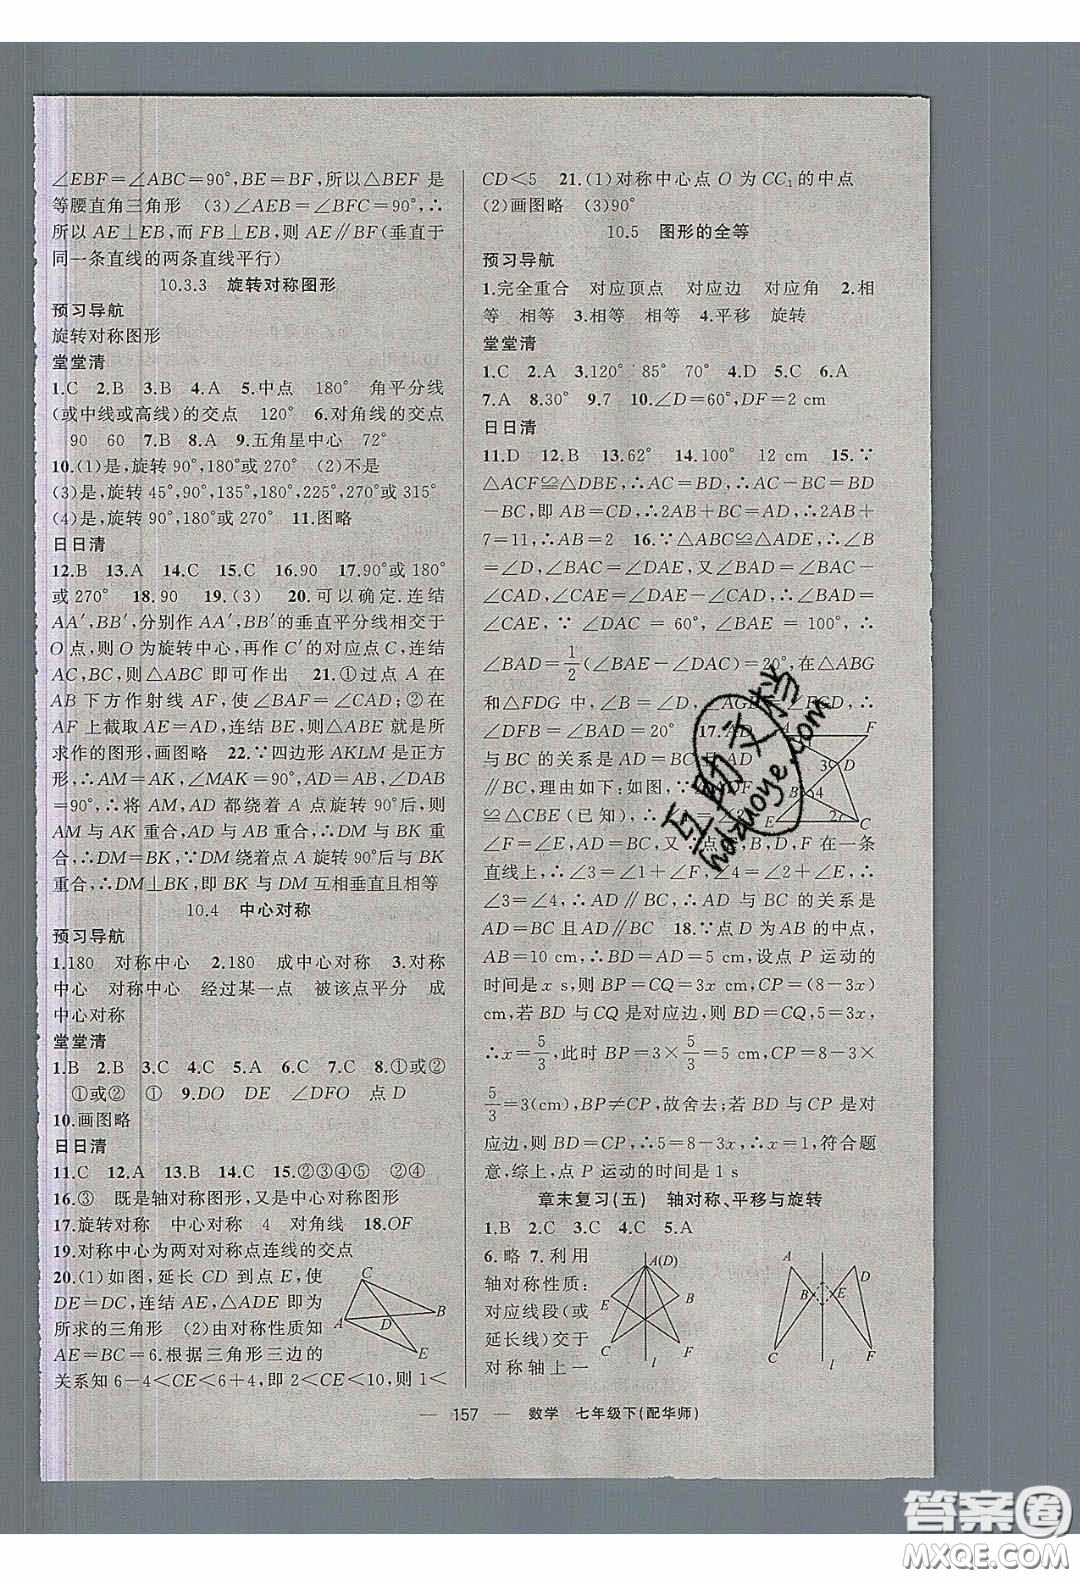 ∠EBF=∠ABC=90°,BE=BF,所以△BEF是
等腰直角三角形 (3)∠AEB=∠BFC=90°,∴
所以 AE⊥EB,而 FB⊥EB,则 AE∥BF(垂直于
同一条直线的两条直线平行)
10.3.3 旋转对称图形
预习导航
旋转对称图形
堂堂清
1.C 2.B 3.B 4.A 5.中点 180° 角平分线
(或中线或高线)的交点 120° 6.对角线的交点
90 60 7.B 8.A 9.五角星中心 72°
10.(1)是,旋转90°,180°或270° (2)不是
(3)是,旋转45°,90°,135°,180°,225°,270°或315°
(4)是,旋转90°,180°或270° 11.图略
日日清
12.B 13.A 14.C 15.C 16.90 17.90°或180°
或270° 18.90 19.(3) 20.可以确定.连结
AA′,BB′,分别作AA′,BB′的垂直平分线相交于
O点,则O为旋转中心,再作C′的对应点C,连结
AC,BC,则△ABC即可作出 21.①过点A在
AB下方作射线AF,使∠BAF=∠CAD;②在
AF上截取AE=AD,连结BE,则△ABE就是所
求作的图形,画图略 22.∵四边形AKLM是正方
形,∴AM=AK,∠MAK=90°,∵AD=AB,∠DAB
=90°,∴将AM,AD都绕着A点旋转90°后,则
AM与AK重合,AD与AB重合,∴DM与BK重
合,∴DM=BK,DM绕着点A旋转90°后与BK
重合,∴DM⊥BK,即BK与DM互相垂直且相等
10.4 中心对称
预习导航
1.180 对称中心 2.180 成中心对称 3.对称
中心 对称中心 经过某一点 被该点平分 成
中心对称
堂堂清
1.B 2.B 3.C 4.C 5.A 6.C 7.C 8.①或②
①或② ① 9.DO DE ∠DFO 点D
10.画图略
日日清
11.C 12.A 13.B 14.C 15.②③④⑤ ②④
16.③ 既是轴对称图形,又是中心对称图形
17.旋转对称 中心对称 4 对角线 18.OF
19.对称中心为两对对称点连线的交点
20.(1)如图,延长CD到点E,使
DE=DC,连结AE,△ADE即为
所求的三角形 (2)由对称性质知
AE=BC=6.根据三角形三边的
关系知6-4<CE<6+4,即2<CE<10,则1<
C
A
D
B
E
CD<5 21.(1)对称中心点O为CC₁的中点
(2)画图略 (3)90°
10.5 图形的全等
预习导航
1.完全重合 对应顶点 对应边 对应角 2.相
等 相等 3.相等 相等 4.平移 旋转
堂堂清
1.C 2.A 3.120° 85° 70° 4.D 5.C 6.A
7.A 8.30° 9.7 10.∠D=60°,DF=2 cm
日日清
11.D 12.B 13.62° 14.100° 12 cm 15.∵
△ACF≌△DBE,∴AC=BD,∴AC-BC=BD
-BC,即AB=CD,∴2AB+BC=AD,∴2AB+
7=11,∴AB=2 16.∵△ABC≌△ADE,∴∠B
=∠D,∠BAC=∠DAE,又∠BAD=∠BAC-
∠CAD,∠CAE=∠DAE-∠CAD,∴∠BAD=
∠CAE,∵∠DAC=60°,∠BAE=100°,∴
∠BAD=1/2(∠BAE-∠DAC)=20°,在△ABG
和△FDG中,∠B=∠D,∠AGB=∠FGD,∴
∠DFB=∠BAD=20° 17.AD
与BC的关系是AD=BC且AD∥
BC,理由如下:如图,
≌△CBE(已知),∴
∠F=∠E,AD=BC,又∵点E,B,D,F在一条
直线上,∴∠3=∠1+∠F,∠4=∠2+∠E,∴
∠3=∠4,∴AD∥BC,∴AD与BC的关系是
AD=BC且AD∥BC 18.∵点D为AB的中点,
AB=10 cm,∴BD=AD=5 cm,设点P运动的
时间是x s,则BP=CQ=3x cm,CP=(8-3x)
cm,若BD与CQ是对应边,则BD=CQ,5=3x,
∴x=5/3,此时BP=3×5/3=5 cm,CP=8-3×
5/3=3(cm),BP≠CP,故舍去;若BD与CP是对
应边,则BD=CP,∴5=8-3x,∴x=1,符合题
意,综上,点P运动的时间是1 s
A
F
3
D
B
4
E
2
C
章末复习(五) 轴对称、平移与旋转
1.B 2.C 3.C 4.C 5.A
6.略 7.利用
轴对称性质:
对应线段(或
延长线)交于
对称轴上一
A(D)
E
B
C
F
l
A
D
B
E
C
F
l
— 157 — 数学 七年级下(配华师)
互助文档
hdzuoye.com
答案卷
MXQE.COM